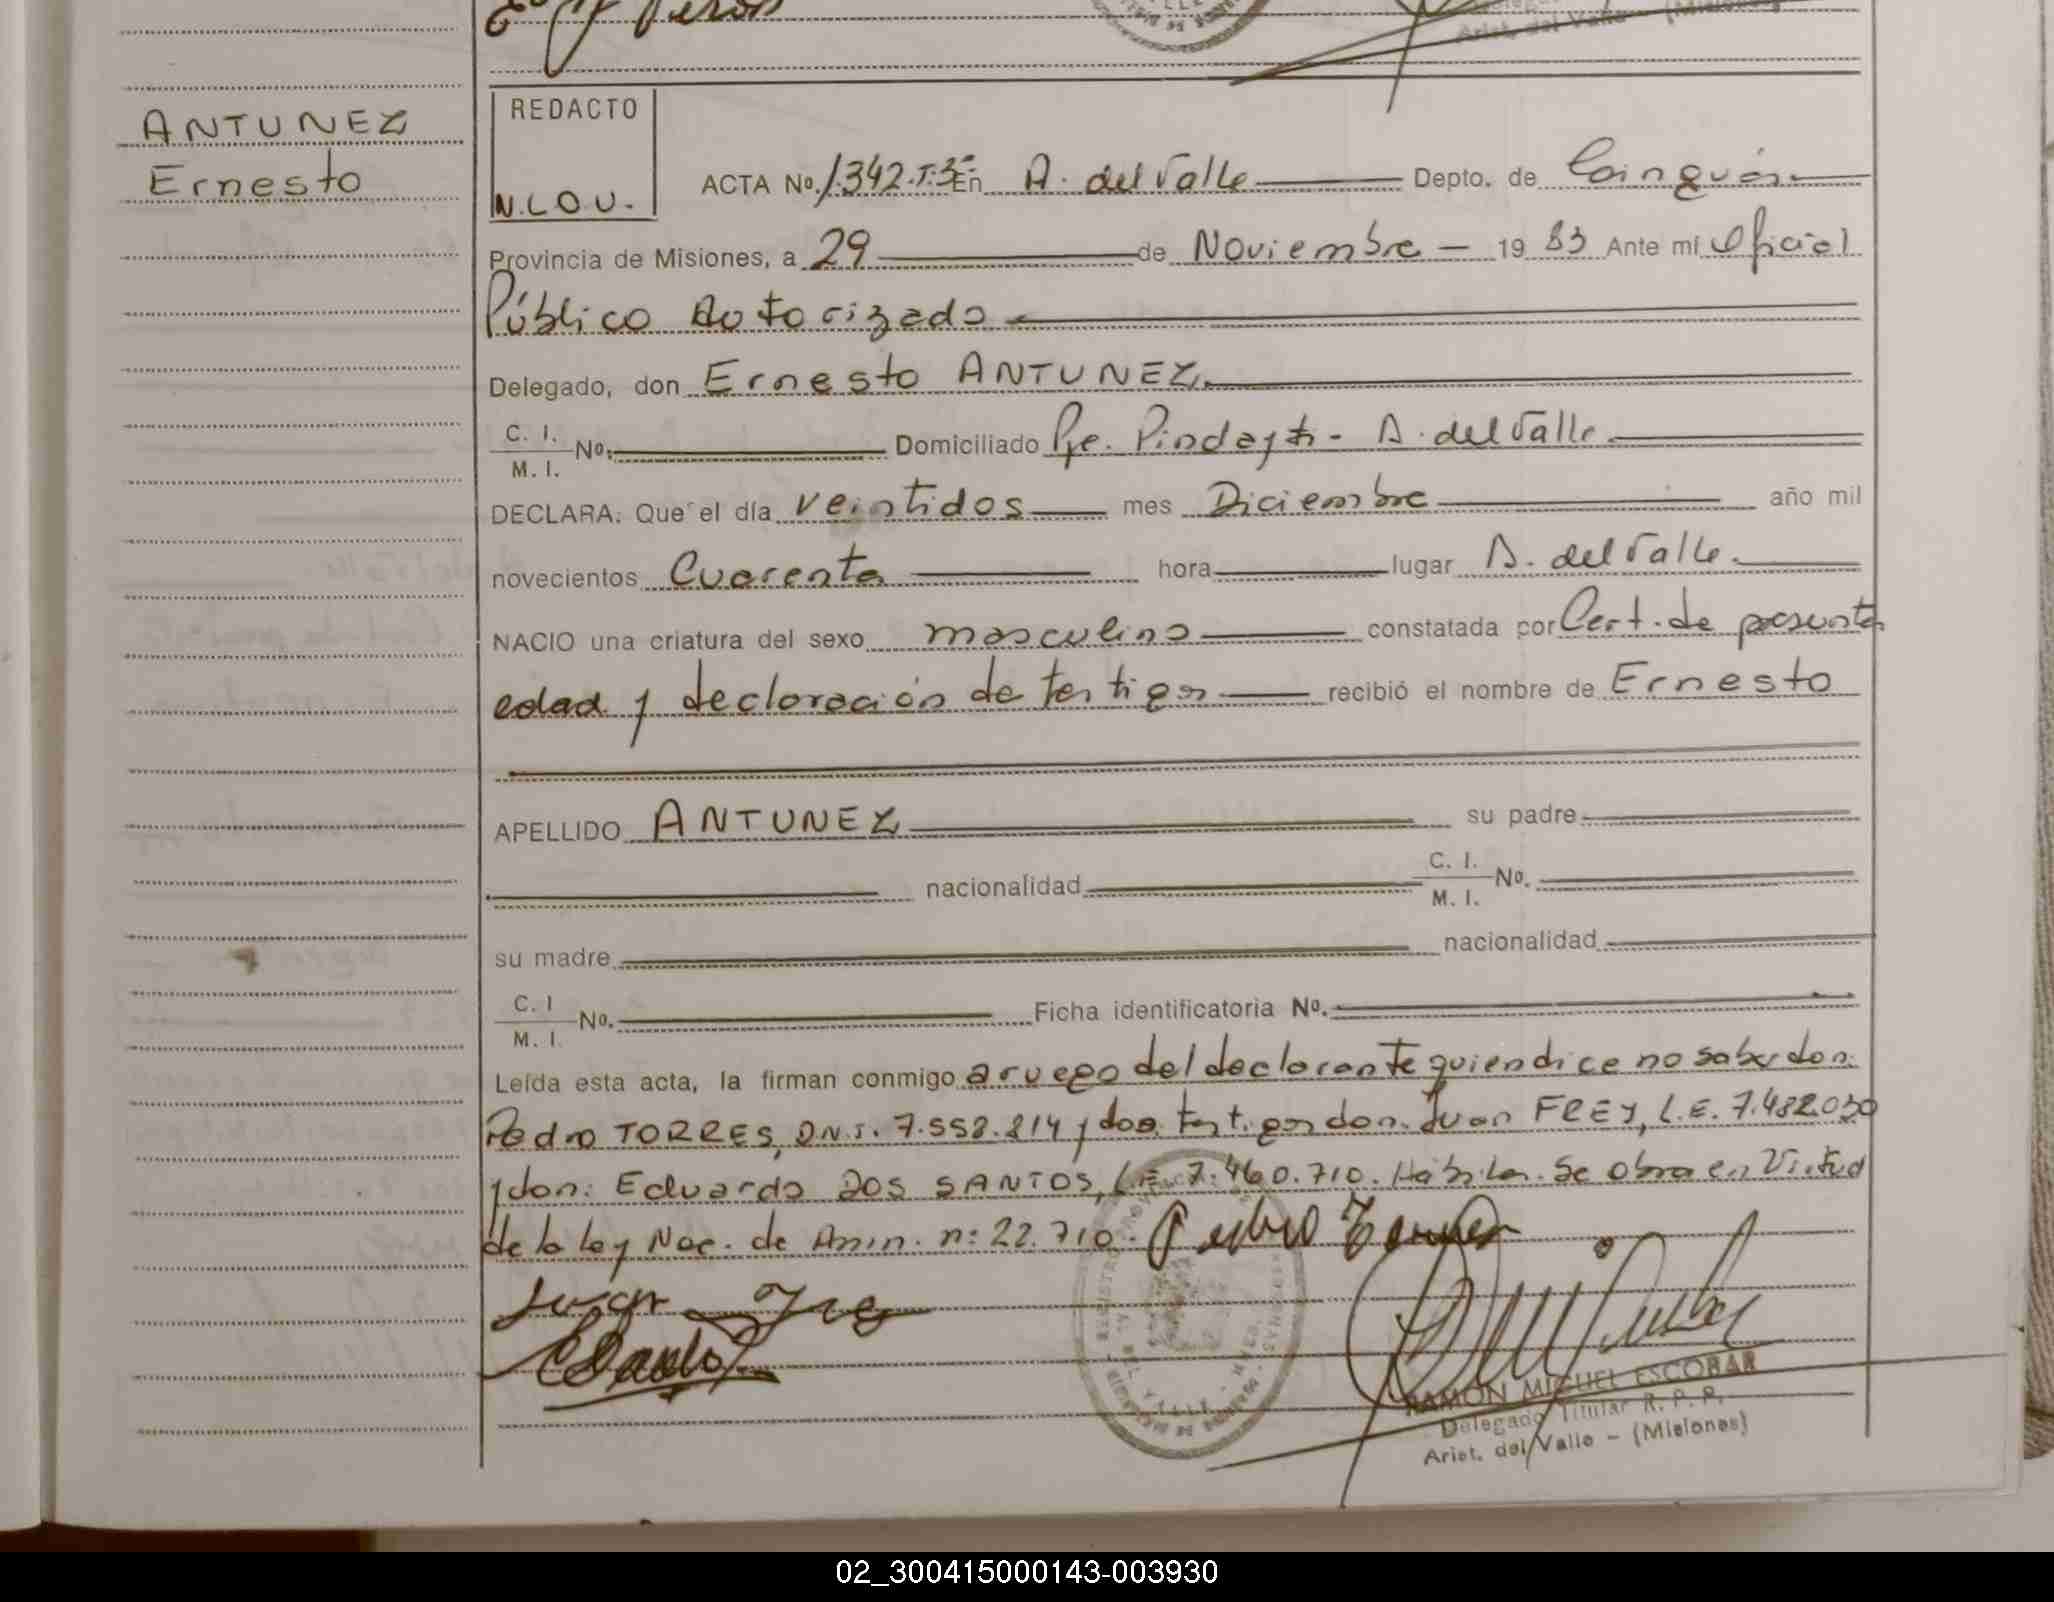 ANTUNEZ
Ernesto
REDACTO
N.L.O.U.
ACTA No. 1.342.T.3º En A. del Valle Depto. de Cainguás
Provincia de Misiones, a 29 de Noviembre 19 83 Ante mí Oficial
Público Autorizado
Delegado, don Ernesto ANTUNEZ.
C. I. M. I. No. Domiciliado Pje. Pindayti - A. del Valle.
DECLARA: Que el día veintidos mes Diciembre año mil
novecientos Cuarenta hora lugar A. del Valle.
NACIO una criatura del sexo masculino constatada por Cert. de presunta
edad y declaración de testigos recibió el nombre de Ernesto
APELLIDO ANTUNEZ su padre
nacionalidad C. I. M. I. No.
su madre nacionalidad
C. I M. I. No. Ficha identificatoria No.
Leída esta acta, la firman conmigo a ruego del declarante quien dice no saber don:
Pedro TORRES, D.N.I. 7.558.814 y dos testigos don: Juan FREY, L.E. 7.482.030
y don: Eduardo DOS SANTOS, L.E. 7.460.710. Hábiles. Se obra en Virtud
de la Ley Nac. de Amn. n: 22.710.
RAMON MIGUEL ESCOBAR
Delegado Titular R. P. P.
Arist. del Valle - (Misiones)
02_300415000143-003930